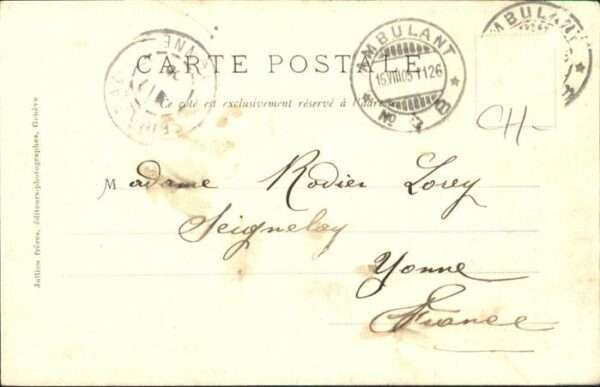 CARTE POSTALE
Ce côté est exclusivement réservé à l'adresse
AMBULANT
16.VIII.05-1126
No
AMBULANT
CH-
Madame Rodier Lorey
Seignelay
Yonne
France
Jullien frères, éditeurs-photographes, Genève